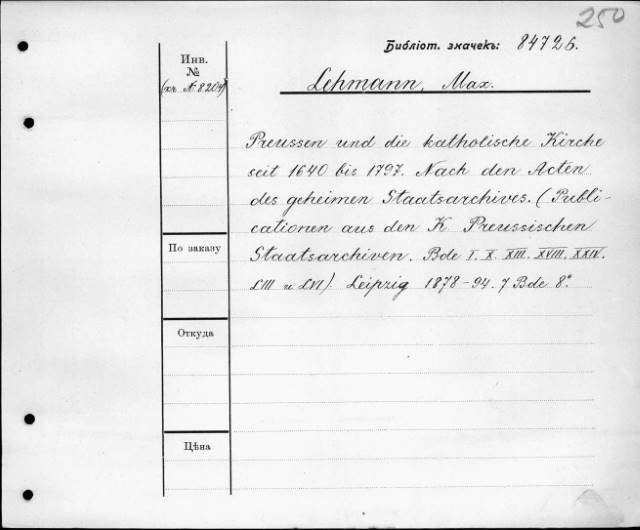 250
Библіот. значекъ: 84726.
Инв.
№
Lehmann, Max.
Preussen und die katholische Kirche
seit 1640 bis 1797. Nach den Acten
des geheimen Staatsarchives. (Publi-
cationen aus den K. Preussischen
Staatsarchiven. Bde I. X. XIII. XVIII. XXIV.
LIII u LVI) Leipzig 1878-94. 7 Bde 8°
По заказу
Откуда
Цѣна